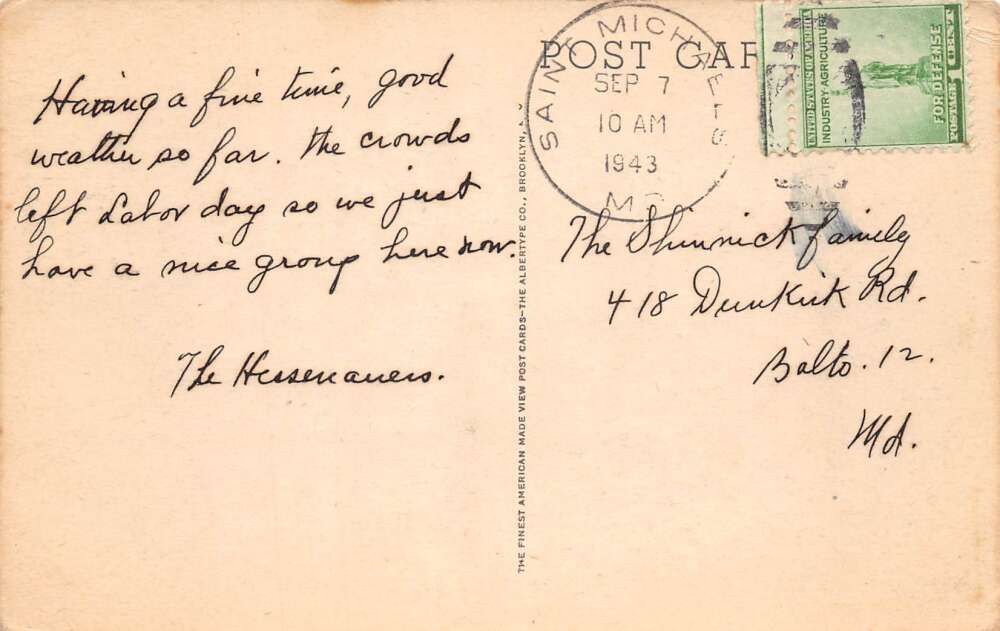 Having a fine time, good
weather so far. The crowds
left Labor day so we just
have a nice group here now.
The Hessenauers.
THE FINEST AMERICAN MADE VIEW POST CARDS—THE ALBERTYPE CO., BROOKLYN, N.Y.
POST CAR
SAINT MICHAELS
SEP 7
10 AM
1943
MD
UNITED STATES OF AMERICA
INDUSTRY·AGRICULTURE
FOR DEFENSE
POSTAGE 1 CENT
The Shinnick family
418 Dunkirk Rd.
Balto. 12.
Md.